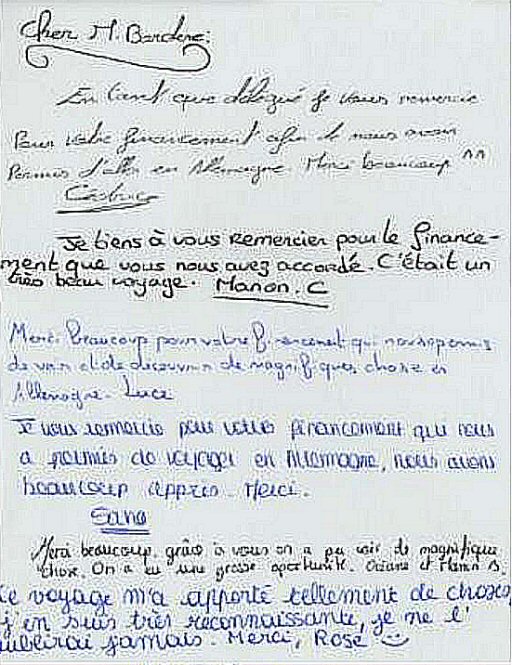 Cher M. Bardere:
En tant que délégué je vous remercie
Pour votre financement afin de nous avoir
Permis d'aller en Allemagne. Merci beaucoup ^^
Je tiens à vous Remercier pour le finance-
ment que vous nous avez accordé. C'était un
très beau voyage. Manon. C
Merci beaucoup pour votre financement qui nous a permis
de voir et de découvrir de magnifiques chose en
Allemagne. Luce
Je vous remercie pour votre financement qui nous
a permis de voyager en Allemagne, nous avons
beaucoup appris. Merci.
Merci beaucoup, grâce à vous on a pu voir de magnifique
chose. On a eu une grosse oportunité. Océane et Manon B.
Ce voyage m'a apporté tellement de choses,
j'en suis très reconnaissante, je ne l'
oublierai jamais. Merci, Rose